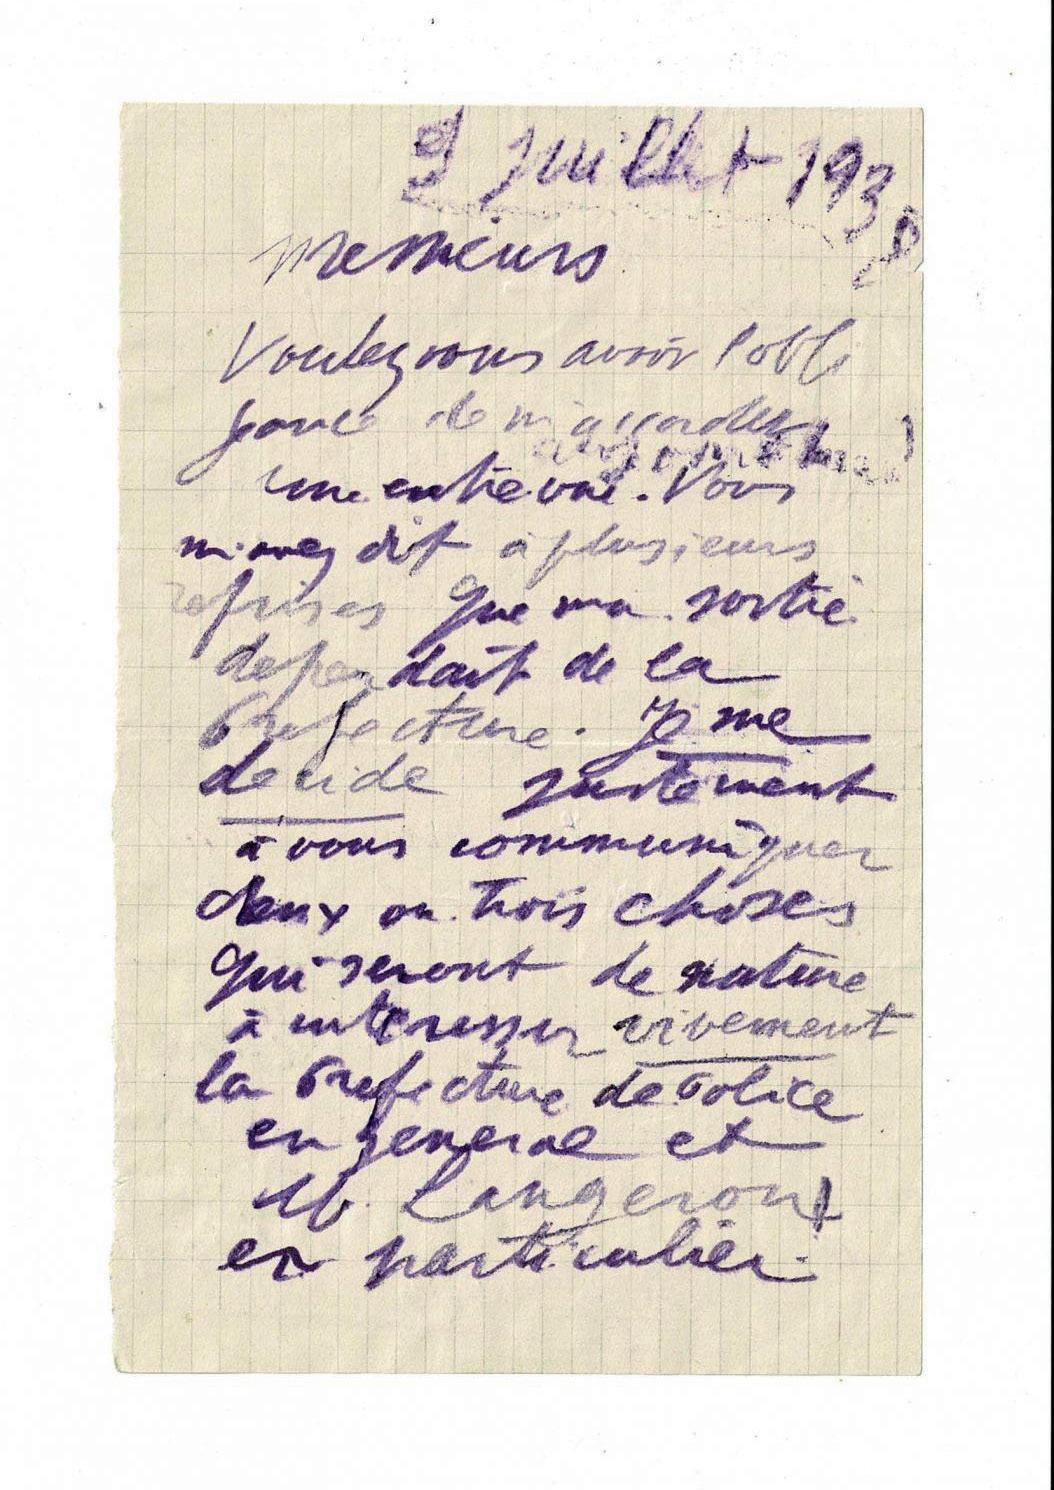 9 juillet 1938
Messieurs
Voulez vous avoir l'obli
geance de m'accorder
une entrevue. Vous
m'avez dit à plusieurs
reprises que ma sortie
dependait de la
Prefecture. Je me
decide justement
à vous communiquer
deux ou trois choses
qui seront de nature
à interesser vivement
la Prefecture de Police
en general et
M. Langeron
en particulier.